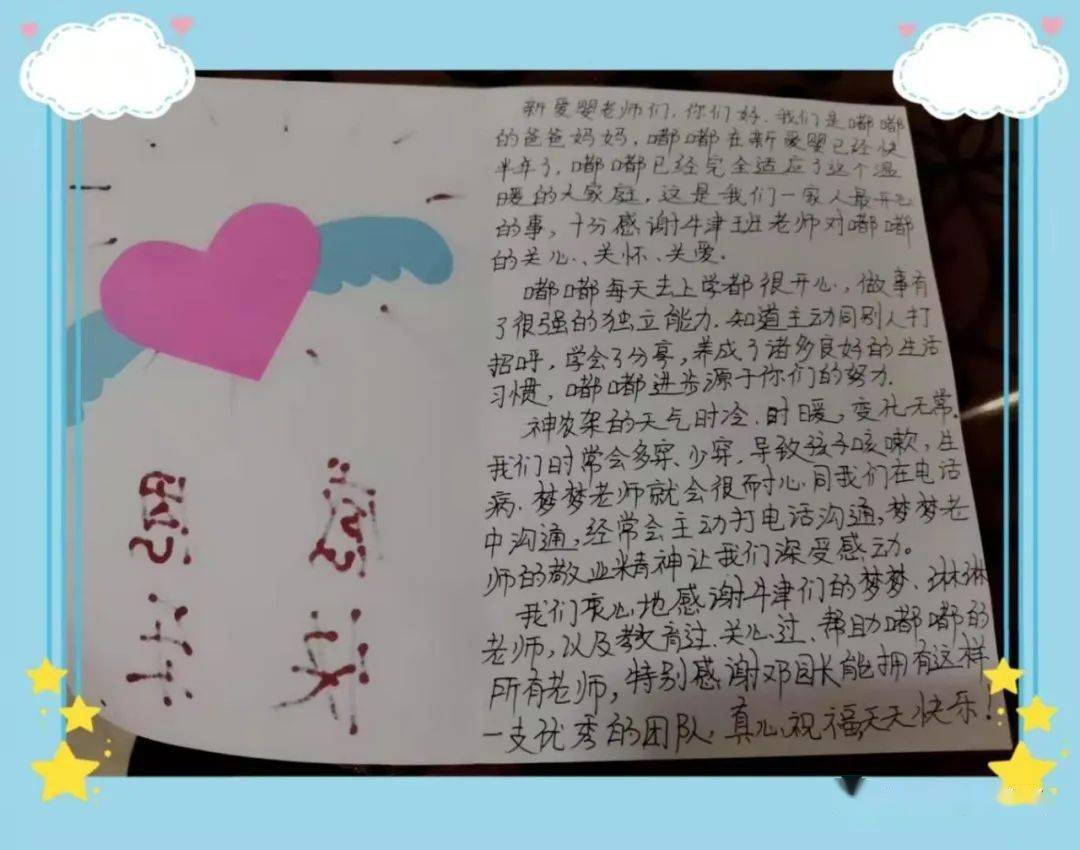 新爱婴老师们，你们好．我们是嘟嘟
的爸爸妈妈，嘟嘟在新爱婴已经快
半年了，嘟嘟已经完全适应了这个温
暖的大家庭，这是我们一家人最开心
的事，十分感谢牛津班老师对嘟嘟
的关心、关怀、关爱．
嘟嘟每天去上学都很开心，做事有
了很强的独立能力．知道主动同别人打
招呼，学会了分享，养成了诸多良好的生活
习惯，嘟嘟进步源于你们的努力．
神农架的天气时冷．时暖，变化无常．
我们时常会多穿、少穿，导致孩子咳嗽，生
病．梦梦老师就会很耐心同我们在电话
中沟通，经常会主动打电话沟通，梦梦老
师的敬业精神让我们深受感动。
我们衷心地感谢牛津们的梦梦、琳琳
老师，以及教育过．关心过．帮助嘟嘟的
所有老师，特别感谢邓园长能拥有这样
一支优秀的团队．真心祝福天天快乐！